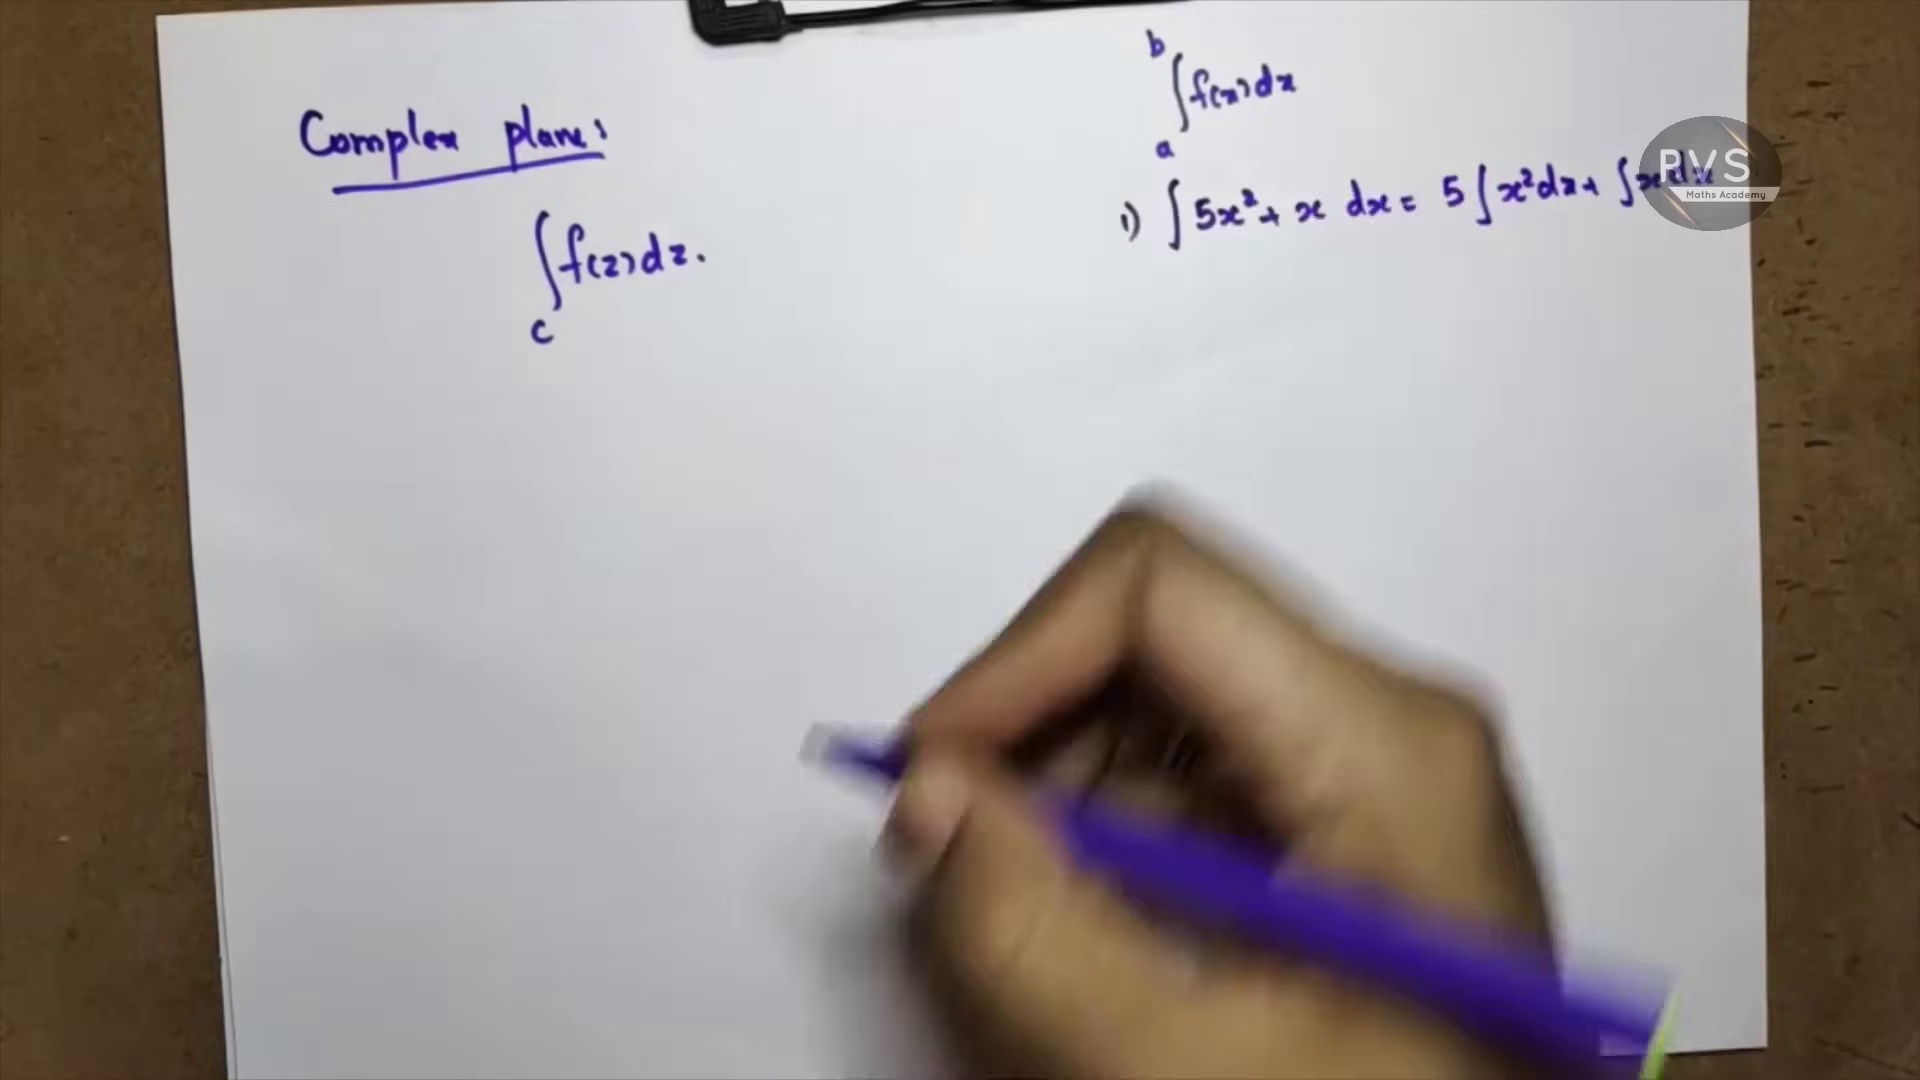 Complex plane:
∫_C f(z)dz.
∫_a^b f(x)dx
1) ∫ 5x² + x dx = 5∫x²dx + ∫x dx
RVS
Maths Academy